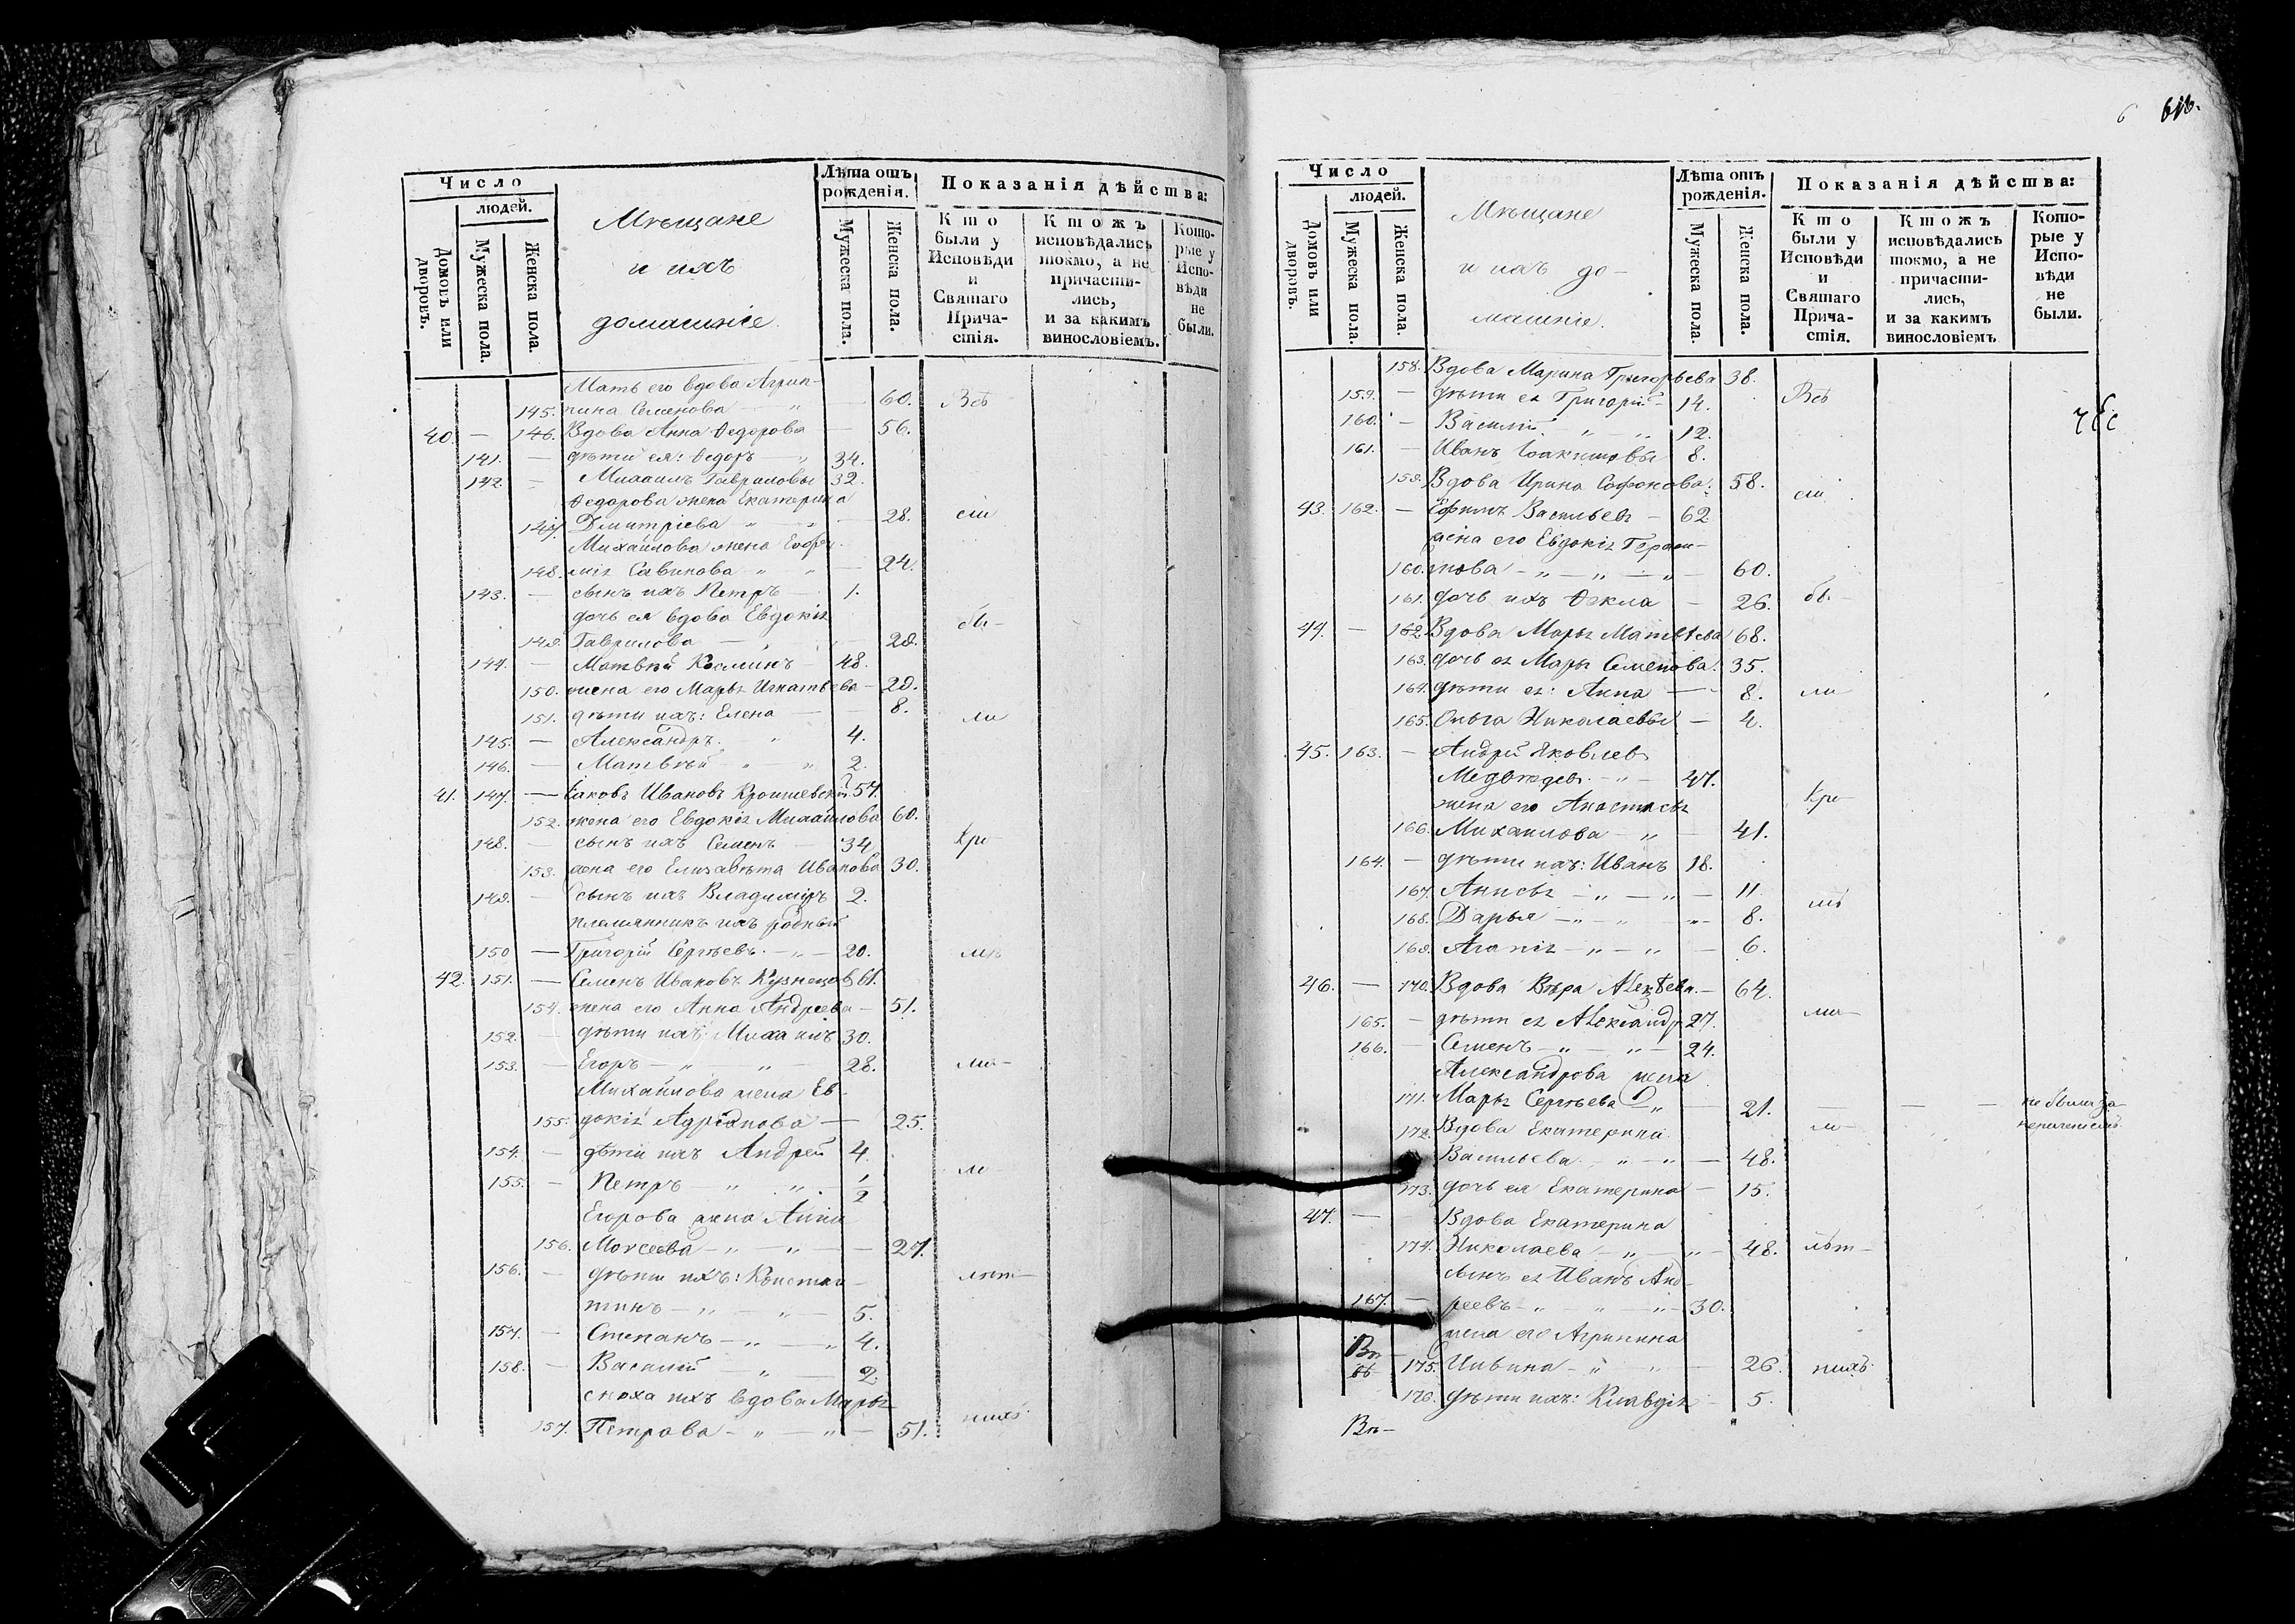 Число
людей.
Домовъ или дворовъ.
Мужеска пола.
Женска пола.
Мѣщане
и ихъ
домашніе.
Лѣта отъ рожденія.
Мужеска пола.
Женска пола.
Показанія дѣйства:
Кто были у Исповѣди и Святаго Прича-стія.
Ктожъ исповѣдались токмо, а не причасти-лись, и за какимъ винословіемъ.
Кото-рые у Испо-вѣди не были.
Мать его вдова Агрип-
145. пина Семенова — 60. Всѣ
40. — 146. Вдова Анна Ѳедорова — 56.
141. — дѣти ея: Ѳедоръ 34.
142. — Михаилъ Гавриловы 32.
Ѳедорова жена Екатерина
147. Дмитріева — 28. сіи
Михайлова жена Евфи-
148. мія Савинова — 24.
143. — сынъ ихъ Петръ — 1.
дочь ея вдова Евдокія бы-
149. Гаврилова — 29.
144. — Матвѣй Косминъ 48.
150. жена его Марья Игнатьева — 29.
151. дѣти ихъ: Елена — 8. ли
145. — Александръ 4.
146. — Матвѣй 2.
41. 147. — Іаковъ Ивановъ 57.
152. жена его Евдокія Михайлова 60.
148. — сынъ ихъ Семенъ — 34 кро
153. жена его Елисавѣта Иванова 30.
149. — сынъ ихъ Владиміръ 2.
племянникъ ихъ родный
150 — Григорій Сергѣевъ — 20.
42. 151. — Семенъ Ивановъ Кузнецовъ 61.
154. жена его Анна Андреева — 51.
152. — дѣти ихъ: Михаилъ 30.
153. — Егоръ — 28.
Михайлова жена Ев-
155. докія Адріанова — 25.
154. — дѣти ихъ Андрей 4.
155. — Петръ — 1/2
Егорова жена Анна
156. Моѵсеева — 27.
156. — дѣти ихъ: Констан-
тинъ — 5.
157. — Степанъ — 4.
158. — Василій — 2.
сноха ихъ вдова Марья
157. Петрова — 51. нихъ
616.
Число
людей.
Домовъ или дворовъ.
Мужеска пола.
Женска пола.
Мѣщане
и ихъ до-
машніе.
Лѣта отъ рожденія.
Мужеска пола.
Женска пола.
Показанія дѣйства:
Кто были у Исповѣди и Святаго Прича-стія.
Ктожъ исповѣдались токмо, а не причасти-лись, и за какимъ винословіемъ
Кото-рые у Испо-вѣди не были.
158. Вдова Марина Григорьева 38.
159. — дѣти ея Григорій — 14. Всѣ
160. — Василій 12.
161. — Иванъ Іоакимовы 8.
159. Вдова Ирина Софонова. 58.
сіи
43. 162. — Ефимъ Васильевъ — 62
жена его Евдокія Гераси-
160. мова — 60.
161. дочь ихъ Ѳекла — 26. бы-
44. — 162 Вдова Марья Матвѣева 68.
163. дочь ея Марья Семенова. 35.
164. дѣти ея: Анна — 8. ли
165. Ольга Николаевы — 4.
45. 163. — Андрей Яковлевъ
Медвѣдевъ — 47.
жена его Анастасья кро-
166. Михаилова — 41.
164. — дѣти ихъ: Иванъ 18.
167. Анисья — 11.
168. Дарья — 8.
169. Агапія — 6.
46. — 170. Вдова Вѣра Алексѣева — 64.
165. — дѣти ея Александръ 27.
166. — Семенъ — 24.
Александрова жена
171. Марья Сергѣева — 21. — — — не были за
172. Вдова Екатерина
Васильева — 48.
173. дочь ея Екатерина — 15.
47. — Вдова Екатерина
174. Николаева — 48.
сынъ ея Иванъ Анд-
167. — реевъ — 30.
жена его Агрипина
175. — 26. нихъ
176. дѣти ихъ: Клавдія 5.